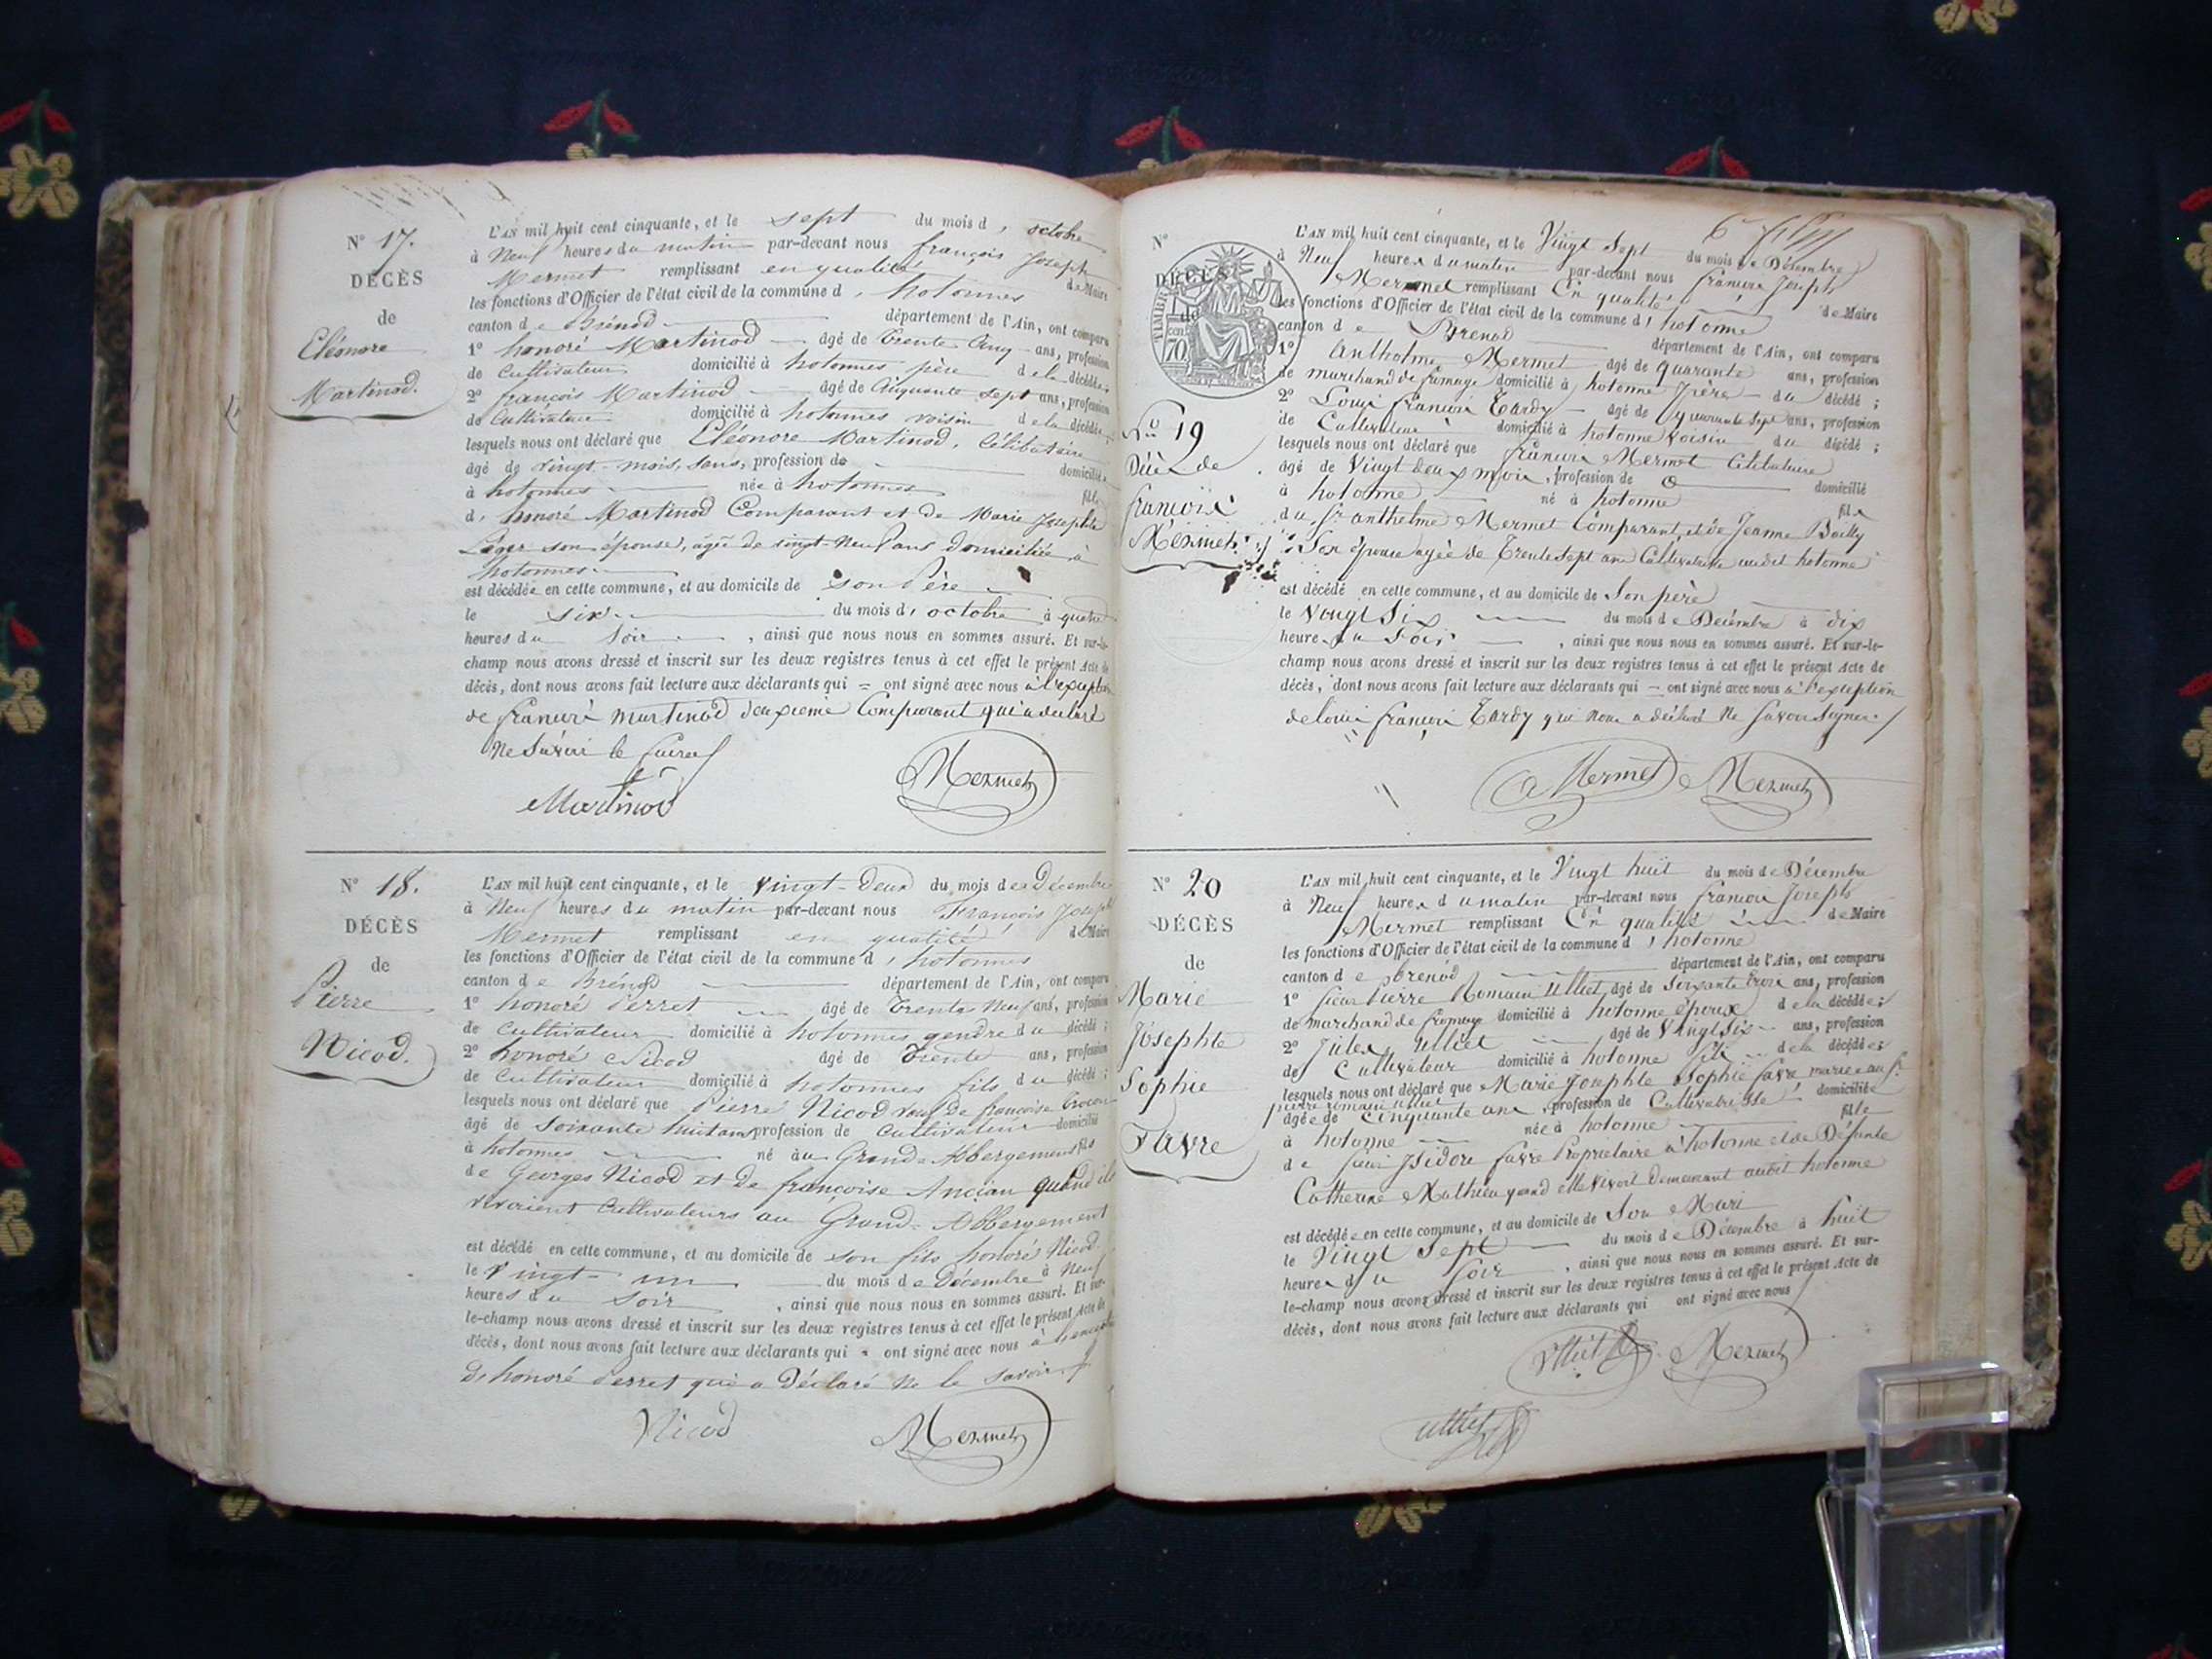 N° 17.
DÉCÈS
de
Eléonore
Martinod.
L'AN mil huit cent cinquante, et le sept du mois d' octobre
à Neuf heures du matin par-devant nous françois Joseph
Mermet remplissant en qualité de Maire
les fonctions d'Officier de l'état civil de la commune d' hotonnes
canton de Brénod département de l'Ain, ont comparu
1° honoré Martinod agé de Trente Cinq ans, profession
de Cultivateur domicilié à hotonnes père de la décédée;
2° françois Martinod agé de Cinquante sept ans, profession
de Cultivateur domicilié à hotonnes voisin de la décédée;
lesquels nous ont déclaré que Eléonore Martinod, Célibataire
âgé de vingt-mois, sans, profession de domiciliée
à hotonnes née à hotonnes fille
d' honoré Martinod Comparant et de Marie Josephte
Léger son épouse, âgée de vingt-neuf ans domiciliée à
hotonnes
est décédée en cette commune, et au domicile de son Père
le six du mois d' octobre à quatre
heures du soir , ainsi que nous nous en sommes assuré. Et sur-le-
champ nous avons dressé et inscrit sur les deux registres tenus à cet effet le présent Acte de
décès, dont nous avons fait lecture aux déclarants qui = ont signé avec nous à l'exception
de francois martinod deuxieme Comparant qui a declaré
Ne Savoir le faire
Martinod Mermet
N° 18.
DÉCÈS
de
Pierre
Nicod.
L'AN mil huit cent cinquante, et le vingt-Deux du mois de Décembre
à Neuf heures du matin par-devant nous François Joseph
Mermet remplissant en qualité de Maire
les fonctions d'Officier de l'état civil de la commune d' hotonnes
canton de Brénod département de l'Ain, ont comparu
1° honoré Perret agé de Trente Neuf ans, profession
de Cultivateur domicilié à hotonnes gendre du décédé;
2° honoré Nicod agé de Trente ans, profession
de Cultivateur domicilié à hotonnes fils du décédé;
lesquels nous ont déclaré que Pierre Nicod veuf de françoise
âgé de Soixante huit ans profession de Cultivateur domicilié
à hotonnes né au Grand-Abbergement fils
de Georges Nicod et de françoise Ancian quand ils
vivaient Cultivateurs au Grand-Abbergement
est décédé en cette commune, et au domicile de son fils honoré Nicod
le Vingt-un du mois de Décembre à Neuf
heures du soir , ainsi que nous nous en sommes assuré. Et sur-
le-champ nous avons dressé et inscrit sur les deux registres tenus à cet effet le présent Acte de
décès, dont nous avons fait lecture aux déclarants qui = ont signé avec nous à
d' honoré Perret qui a Déclaré ne le savoir
Nicod Mermet
N°
DÉCÈS
de
TIMBRE
70
N° 19
Décè de
francois
Mermet
L'AN mil huit cent cinquante, et le Vingt Sept du mois de Décembre
à Neuf heures du matin par-devant nous françois Joseph
Mermet remplissant En qualité de Maire
les fonctions d'Officier de l'état civil de la commune d' hotonne
canton de Brenod département de l'Ain, ont comparu
1° Anthelme Mermet agé de quarante ans, profession
de marchand de fromage domicilié à hotonne père du décédé;
2° Louis francois Tardy agé de quarante Sept ans, profession
de Cultivateur domicilié à hotonne Voisin du décédé;
lesquels nous ont déclaré que francois Mermet Célibataire
âgé de Vingt deux mois, profession de domicilié
à hotonne né à hotonne fils
du Sr anthelme Mermet Comparant, et de Jeanne Bailly
Son épouse agée de Trente Sept ans Cultivatrice audit hotonne
est décédé en cette commune, et au domicile de Son père
le Vingt Six du mois de Décembre à dix
heures du Soir , ainsi que nous nous en sommes assuré. Et sur-le-
champ nous avons dressé et inscrit sur les deux registres tenus à cet effet le présent Acte de
décès, dont nous avons fait lecture aux déclarants qui = ont signé avec nous à l'exception
de Louis françois Tardy qui nous a déclaré Ne Savoir Signer.
Mermet Mermet
N° 20
DÉCÈS
de
Marie
Josephte
Sophie
Favre
L'AN mil huit cent cinquante, et le Vingt huit du mois de Décembre
à Neuf heures du matin par-devant nous francois Joseph
Mermet remplissant En qualité de Maire
les fonctions d'Officier de l'état civil de la commune d' hotonne
canton de brenod département de l'Ain, ont comparu
1° sieur Pierre Romain Ulliet, agé de Soixante trois ans, profession
de marchand de fromage domicilié à hotonne époux de la décédée;
2° Jules Ulliet agé de Vingt Six ans, profession
de Cultivateur domicilié à hotonne fils de la décédée;
lesquels nous ont déclaré que Marie Josephte Sophie favre mariée au Sr
pierre romain Ulliet
âgée de Cinquante ans, profession de Cultivatrice domiciliée
à hotonne née à hotonne fille
de sieur Isidore favre Propriétaire à hotonne et de Défunte
Catherine Mathieu quand elle vivoit demeurant audit hotonne
est décédée en cette commune, et au domicile de Son Mari
le Vingt Sept du mois de Décembre à huit
heures du Soir , ainsi que nous nous en sommes assuré. Et sur-
le-champ nous avons dressé et inscrit sur les deux registres tenus à cet effet le présent Acte de
décès, dont nous avons fait lecture aux déclarants qui ont signé avec nous
Ulliet Mermet
Ulliet